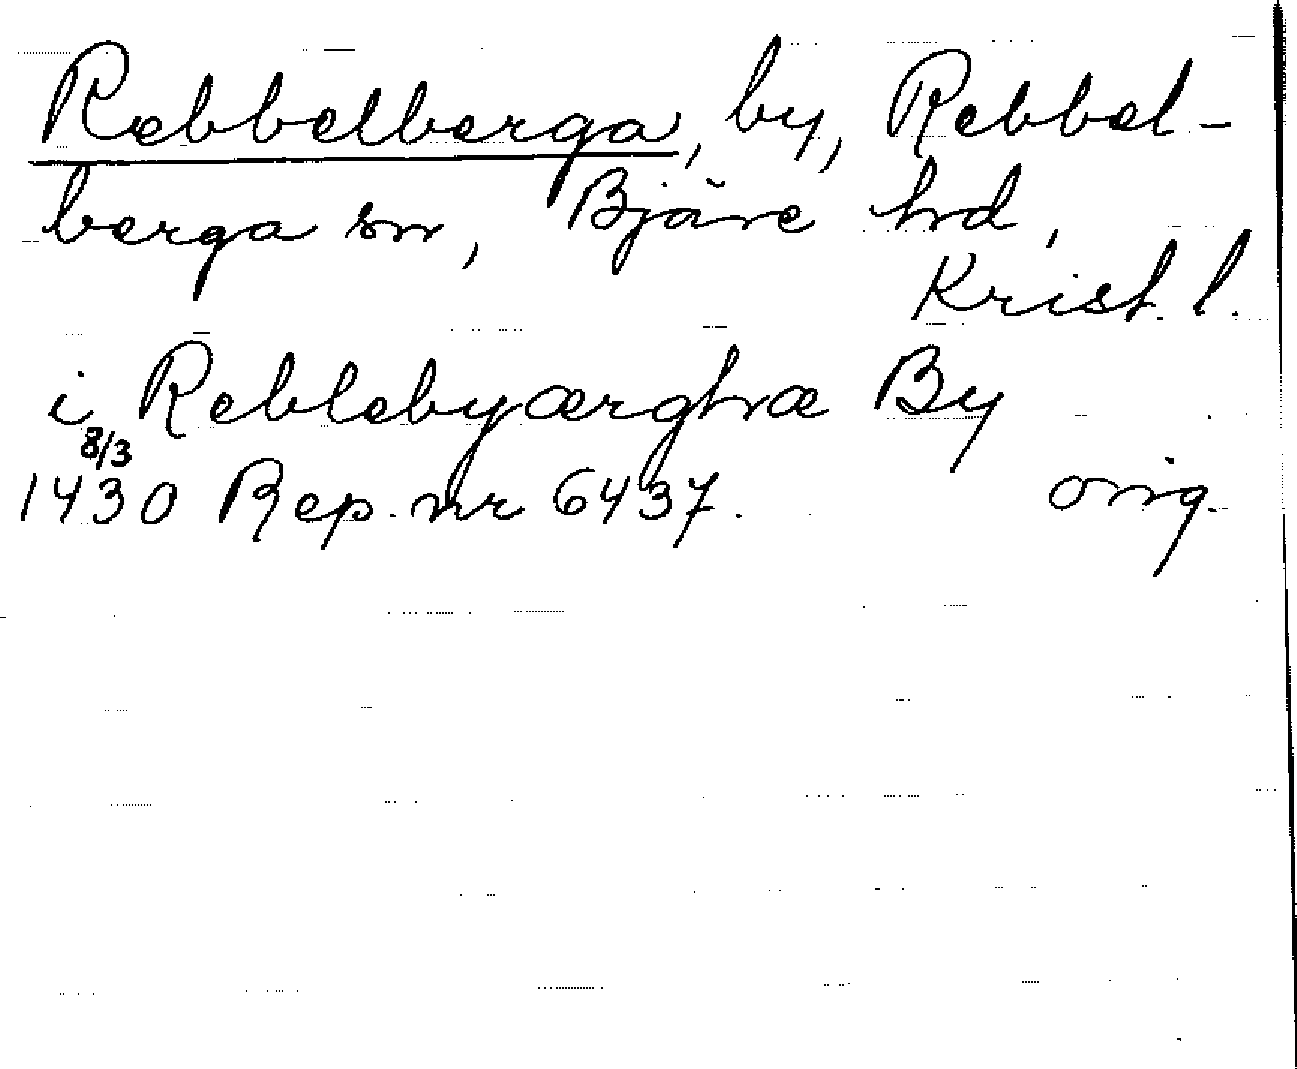 Rebbelberga, by, Rebbel-
berga sn, Bjäre hd,
Krist. l.
i Reblebyærghæ By
8/3
1430 Rep. nr 6437. orig.